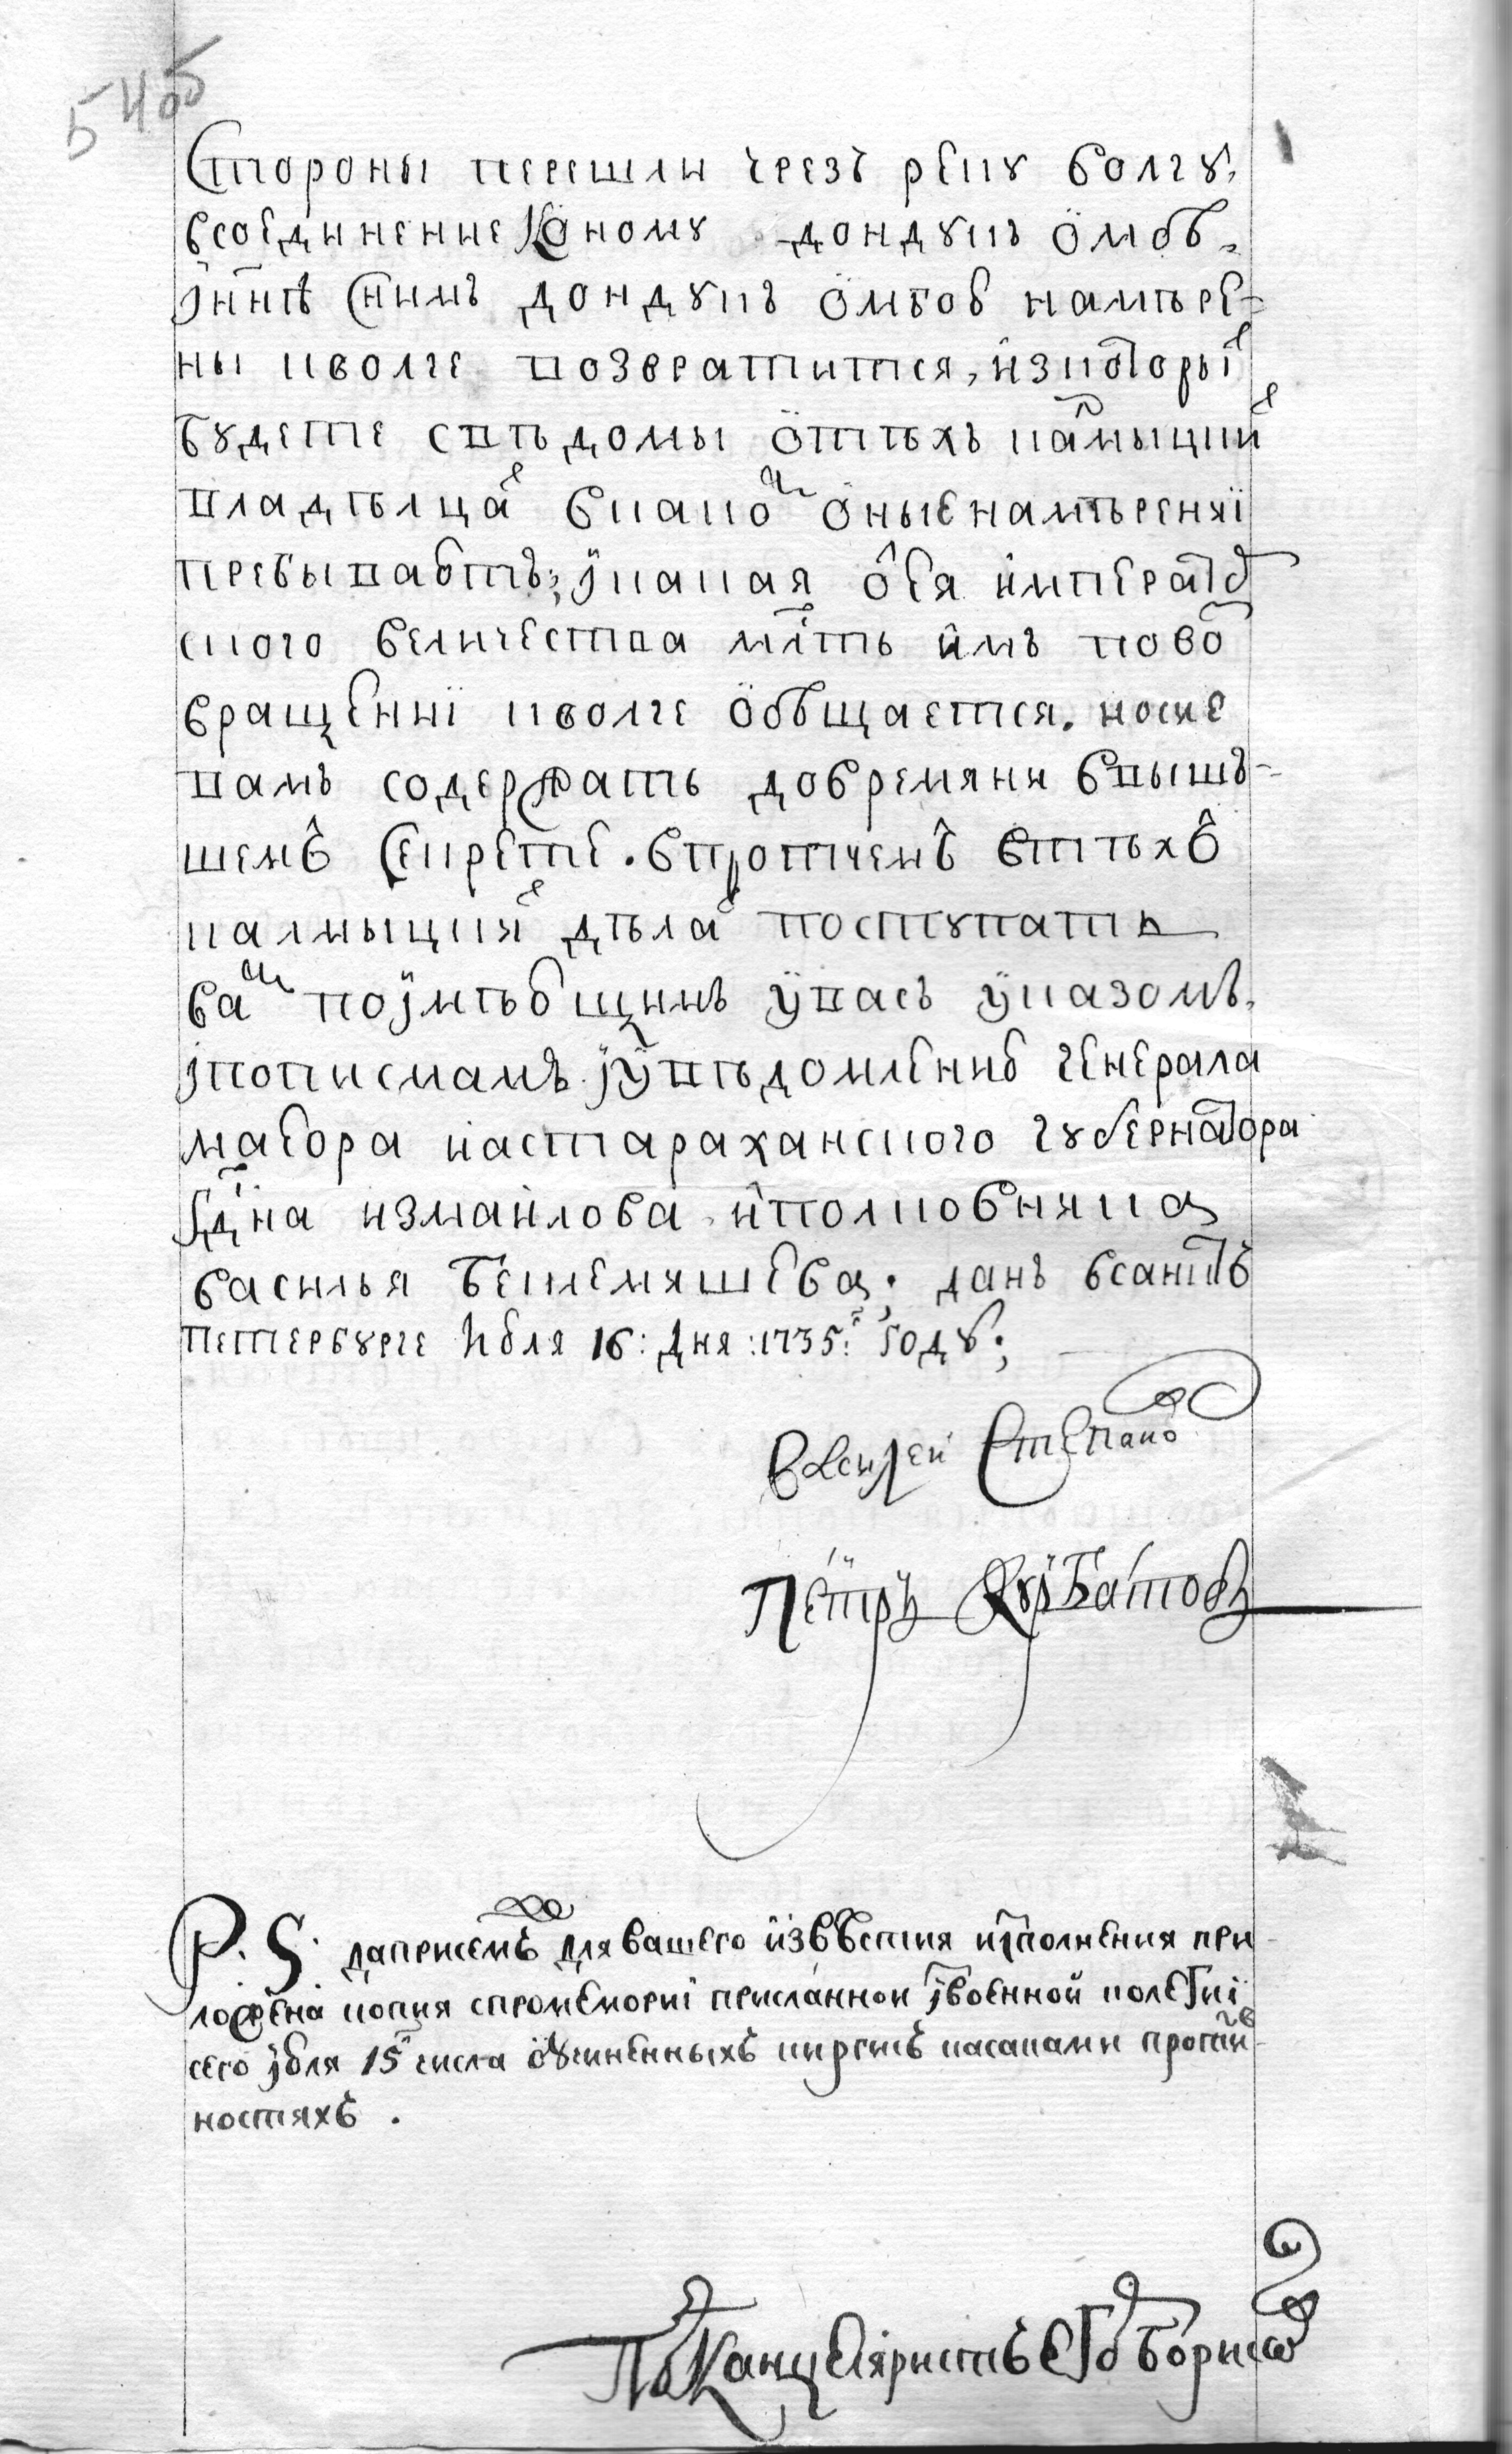 54об
Стороны перешли чрезъ реку волгу,
всоединение Коному дондукъ омбѣ,
јнн҃ѣ Снимъ дондукъ омбов намѣре-
ны кволге возвратитца, изкоторых
будете свѣдомы отѣхъ калмыцких
владѣлцах вкакомъ оные намѣрениї
пребываютъ; јкакая ея император
ского величества мл҃ть имъ повоз
вращениї кволге обѣщаетца. носие
вамъ содержать довремяниввышъ-
шемъ Секрете. впротчемъ втѣхъ
калмыцких дѣлах поступать
вамъ поимѣющимъ увасъ указомъ,
јпописмамъ јувѣдомлению генерала
маеора иастараханского губернатора
Гд҃на измаилова иполковника
василья беклемяшева; данъ всанктъ
петербурге Июля 16: дня :1735: году;
Василей Степанов
Петръ Курбатовъ
P. S. даприсемъ для вашего извѣстия иисполнения при-
ложена копия спромемориї присланнои јзвоенной колегиї
сего јюля 15 числа оучиненныхъ киргисъ касаками против-
ностяхъ .
ПодКанцеляристъ Егор Борисов